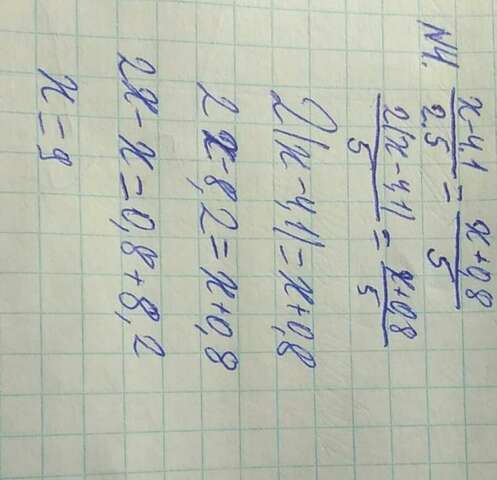 N4.
x-4,1/2,5 = x+0,8/5
2(x-4,1)/5 = x+0,8/5
2(x-4,1)=x+0,8
2x-8,2=x+0,8
2x-x=0,8+8,2
x=9